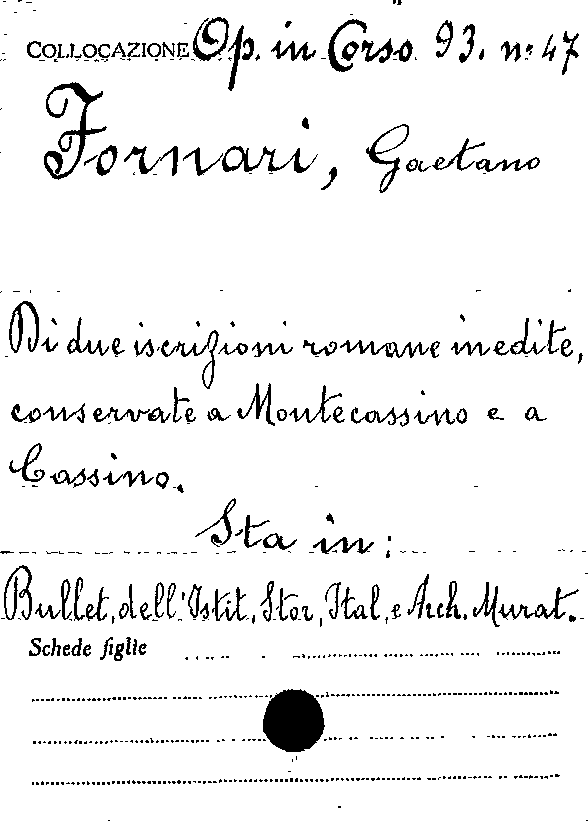 COLLOCAZIONE Op. in Corso 93. n: 47
Fornari, Gaetano
Di due iscrizioni romane inedite,
conservate a Montecassino e a
Cassino.
Sta in:
Bullet. dell'Istit. Stor. Ital. e Arch. Murat.
Schede figlie